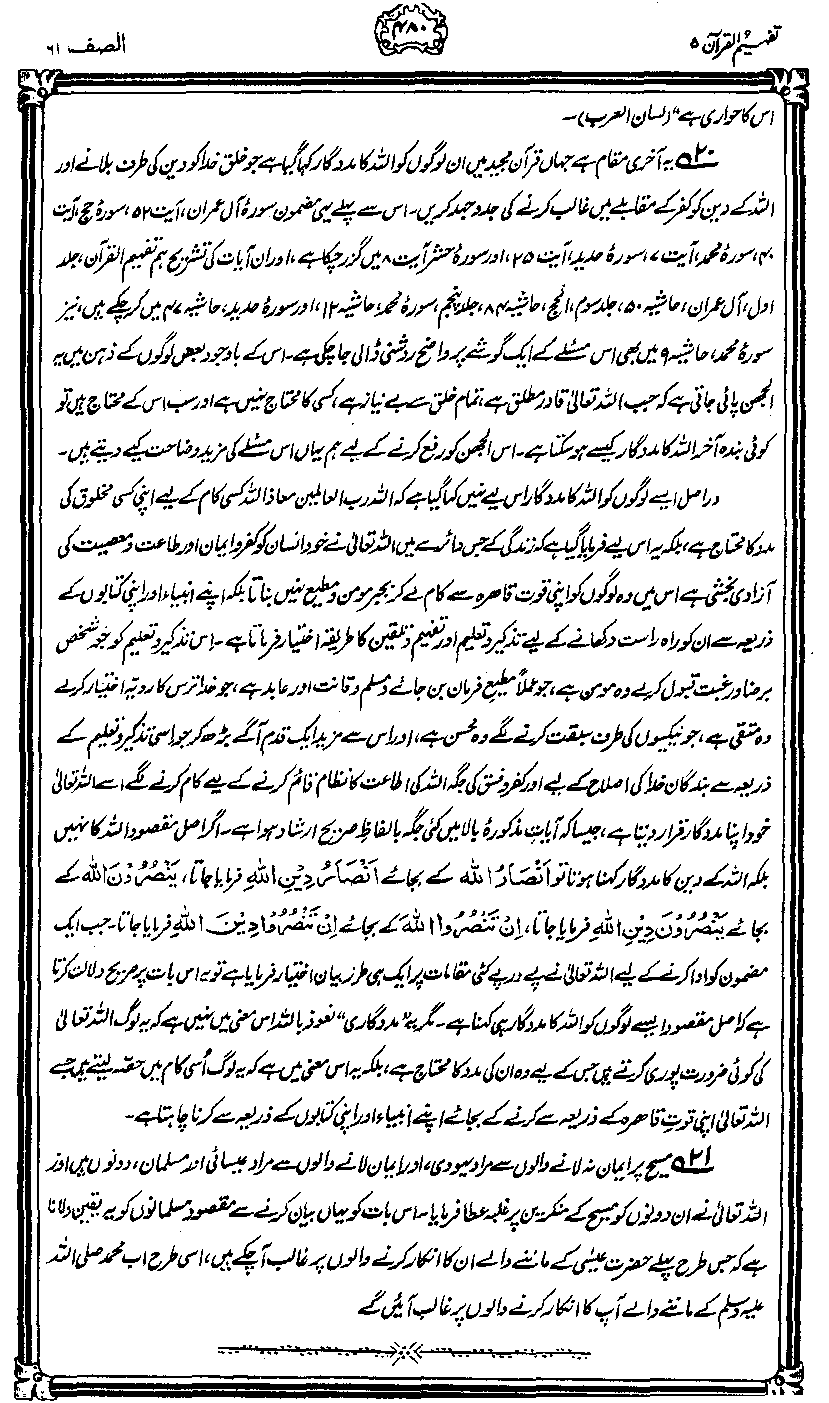 تفہیم القرآن ۵
۴۸۰
الصف ۶۱
اس کا حواری ہے“ (لسان العرب)۔
۲۰؎ یہ آخری مقام ہے جہاں قرآن مجید میں ان لوگوں کو اللہ کا مددگار کہا گیا ہے جو خلق خدا کو دین کی طرف بلانے اور
اللہ کے دین کو کفر کے مقابلے میں غالب کرنے کی جدوجہد کریں۔ اس سے پہلے یہی مضمون سورۂ آل عمران، آیت ۵۲، سورۂ حج، آیت
۴۰، سورۂ محمد، آیت ۷، سورۂ حدید، آیت ۲۵، اور سورۂ حشر آیت ۸ میں گزر چکا ہے، اور ان آیات کی تشریح ہم تفہیم القرآن، جلد
اول، آل عمران، حاشیہ ۵۰، جلد سوم، الحج، حاشیہ ۸۴، جلد پنجم، سورۂ محمد، حاشیہ ۱۲، اور سورۂ حدید، حاشیہ ۴۷ میں کر چکے ہیں، نیز
سورۂ محمد، حاشیہ ۹ میں بھی اس مسئلے کے ایک گوشے پر واضح روشنی ڈالی جا چکی ہے۔ اس کے باوجود بعض لوگوں کے ذہن میں یہ
الجھن پائی جاتی ہے کہ جب اللہ تعالیٰ قادر مطلق ہے، تمام خلق سے بے نیاز ہے، کسی کا محتاج نہیں ہے اور سب اس کے محتاج ہیں تو
کوئی بندہ آخر اللہ کا مددگار کیسے ہو سکتا ہے۔ اس الجھن کو رفع کرنے کے لیے ہم یہاں اس مسئلے کی مزید وضاحت کیے دیتے ہیں۔
دراصل ایسے لوگوں کو اللہ کا مددگار اس لیے نہیں کہا گیا ہے کہ اللہ رب العالمین معاذ اللہ کسی کام کے لیے اپنی کسی مخلوق کی
مدد کا محتاج ہے، بلکہ یہ اس لیے فرمایا گیا ہے کہ زندگی کے جس دائرے میں اللہ تعالیٰ نے خود انسان کو کفر و ایمان اور طاعت و معصیت کی
آزادی بخشی ہے اس میں وہ لوگوں کو اپنی قوت قاہرہ سے کام لے کر بجبر مومن و مطیع نہیں بناتا بلکہ اپنے انبیاء اور اپنی کتابوں کے
ذریعہ سے ان کو راہ راست دکھانے کے لیے تذکیر و تعلیم اور تفہیم و تلقین کا طریقہ اختیار فرماتا ہے۔ اس تذکیر و تعلیم کو جو شخص
برضا و رغبت قبول کرلے وہ مومن ہے، جو عملاً مطیع فرمان بن جائے وہ مسلم و قانت اور عابد ہے، جو خدا ترسی کا رویہ اختیار کرلے
وہ متقی ہے، جو نیکیوں کی طرف سبقت کرنے لگے وہ محسن ہے، اور اس سے مزید ایک قدم آگے بڑھ کر جو اسی تذکیر و تعلیم کے
ذریعہ سے بندگان خدا کی اصلاح کے لیے اور کفر و فسق کی جگہ اللہ کی اطاعت کا نظام قائم کرنے کے لیے کام کرنے لگے اسے اللہ تعالیٰ
خود اپنا مددگار قرار دیتا ہے، جیسا کہ آیات مذکورۂ بالا میں کئی جگہ بالفاظ صریح ارشاد ہوا ہے۔ اگر اصل مقصود اللہ کا نہیں
بلکہ اللہ کے دین کا مددگار کہنا ہوتا تو اَنْصَارُ اللّٰهِ کے بجائے اَنْصَارُ دِيْنِ اللّٰهِ فرمایا جاتا، يَنْصُرُوْنَ اللّٰهَ کے
بجائے يَنْصُرُوْنَ دِيْنَ اللّٰهِ فرمایا جاتا، اِنْ تَنْصُرُوا اللّٰهَ کے بجائے اِنْ تَنْصُرُوْا دِيْنَ اللّٰهِ فرمایا جاتا۔ جب ایک
مضمون کو ادا کرنے کے لیے اللہ تعالیٰ نے پے در پے کئی مقامات پر ایک ہی طرز بیان اختیار فرمایا ہے تو یہ اس بات پر صریح دلالت کرتا
ہے کہ اصل مقصود ایسے لوگوں کو اللہ کا مددگار ہی کہنا ہے۔ مگر یہ ”مددگاری“ نعوذ باللہ اس معنی میں نہیں ہے کہ یہ لوگ اللہ تعالیٰ
کی کوئی ضرورت پوری کرتے ہیں جس کے لیے وہ ان کی مدد کا محتاج ہے، بلکہ یہ اس معنی میں ہے کہ یہ لوگ اُسی کام میں حصہ لیتے ہیں جسے
اللہ تعالیٰ اپنی قوتِ قاہرہ کے ذریعہ سے کرنے کے بجائے اپنے انبیاء اور اپنی کتابوں کے ذریعہ سے کرنا چاہتا ہے۔
۲۱؎ مسیح پر ایمان نہ لانے والوں سے مراد یہودی، اور ایمان لانے والوں سے مراد عیسائی اور مسلمان، دونوں ہیں اور
اللہ تعالیٰ نے ان دونوں کو مسیح کے منکرین پر غلبہ عطا فرمایا۔ اس بات کو یہاں بیان کرنے سے مقصود مسلمانوں کو یہ یقین دلانا
ہے کہ جس طرح پہلے حضرت عیسٰی کے ماننے والے ان کا انکار کرنے والوں پر غالب آ چکے ہیں، اسی طرح اب محمد صلی اللہ
علیہ وسلم کے ماننے والے آپ کا انکار کرنے والوں پر غالب آئیں گے